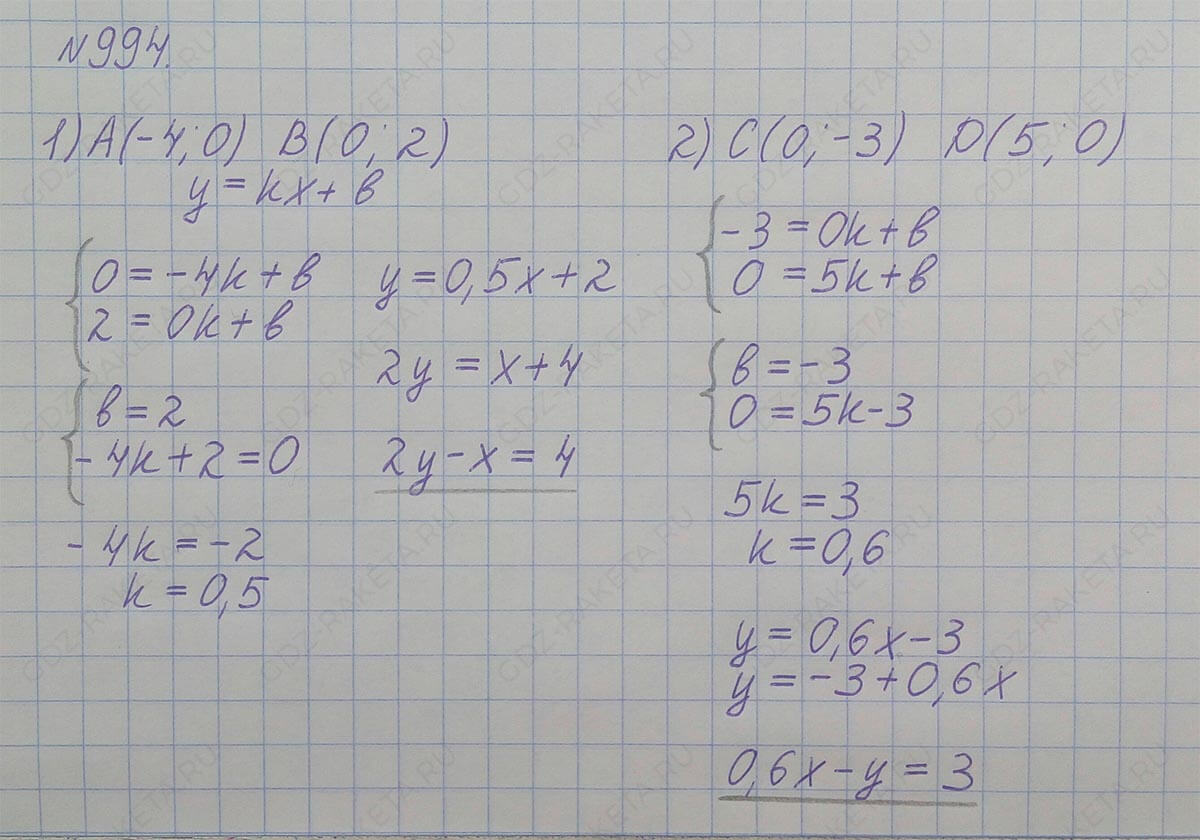 №994.
1) A(-4; 0) B(0; 2)
y = kx + в
0 = -4k + в
2 = 0k + в
в = 2
-4k + 2 = 0
-4k = -2
k = 0,5
y = 0,5x + 2
2y = x + 4
2y - x = 4
2) C(0; -3) D(5; 0)
-3 = 0k + в
0 = 5k + в
в = -3
0 = 5k - 3
5k = 3
k = 0,6
y = 0,6x - 3
y = -3 + 0,6x
0,6x - y = 3
GDZ-RAKETA.RU